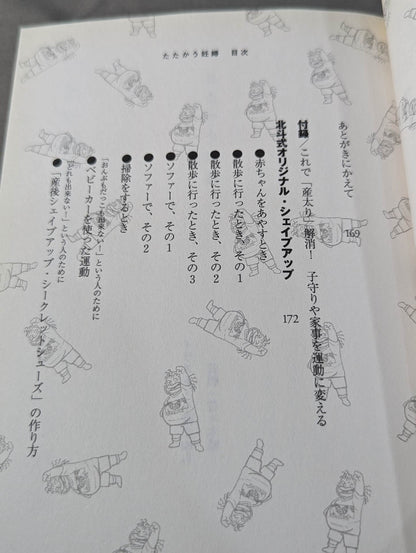 たたかう妊婦 目次
あとがきにかえて 169
付録/これで「産太り」解消! 子守りや家事を運動に変える
北斗式オリジナル・シェイプアップ 172
●赤ちゃんをあやすとき
●散歩に行ったとき、その1
●散歩に行ったとき、その2
●散歩に行ったとき、その3
●ソファーで、その1
●ソファーで、その2
●掃除をするとき
「おんぶもだっこも出来ない!」という人のために
●ベビーカーを使った運動
「どれも出来ない!」という人のために
●「産後シェイプアップ・シークレットシューズ」の作り方